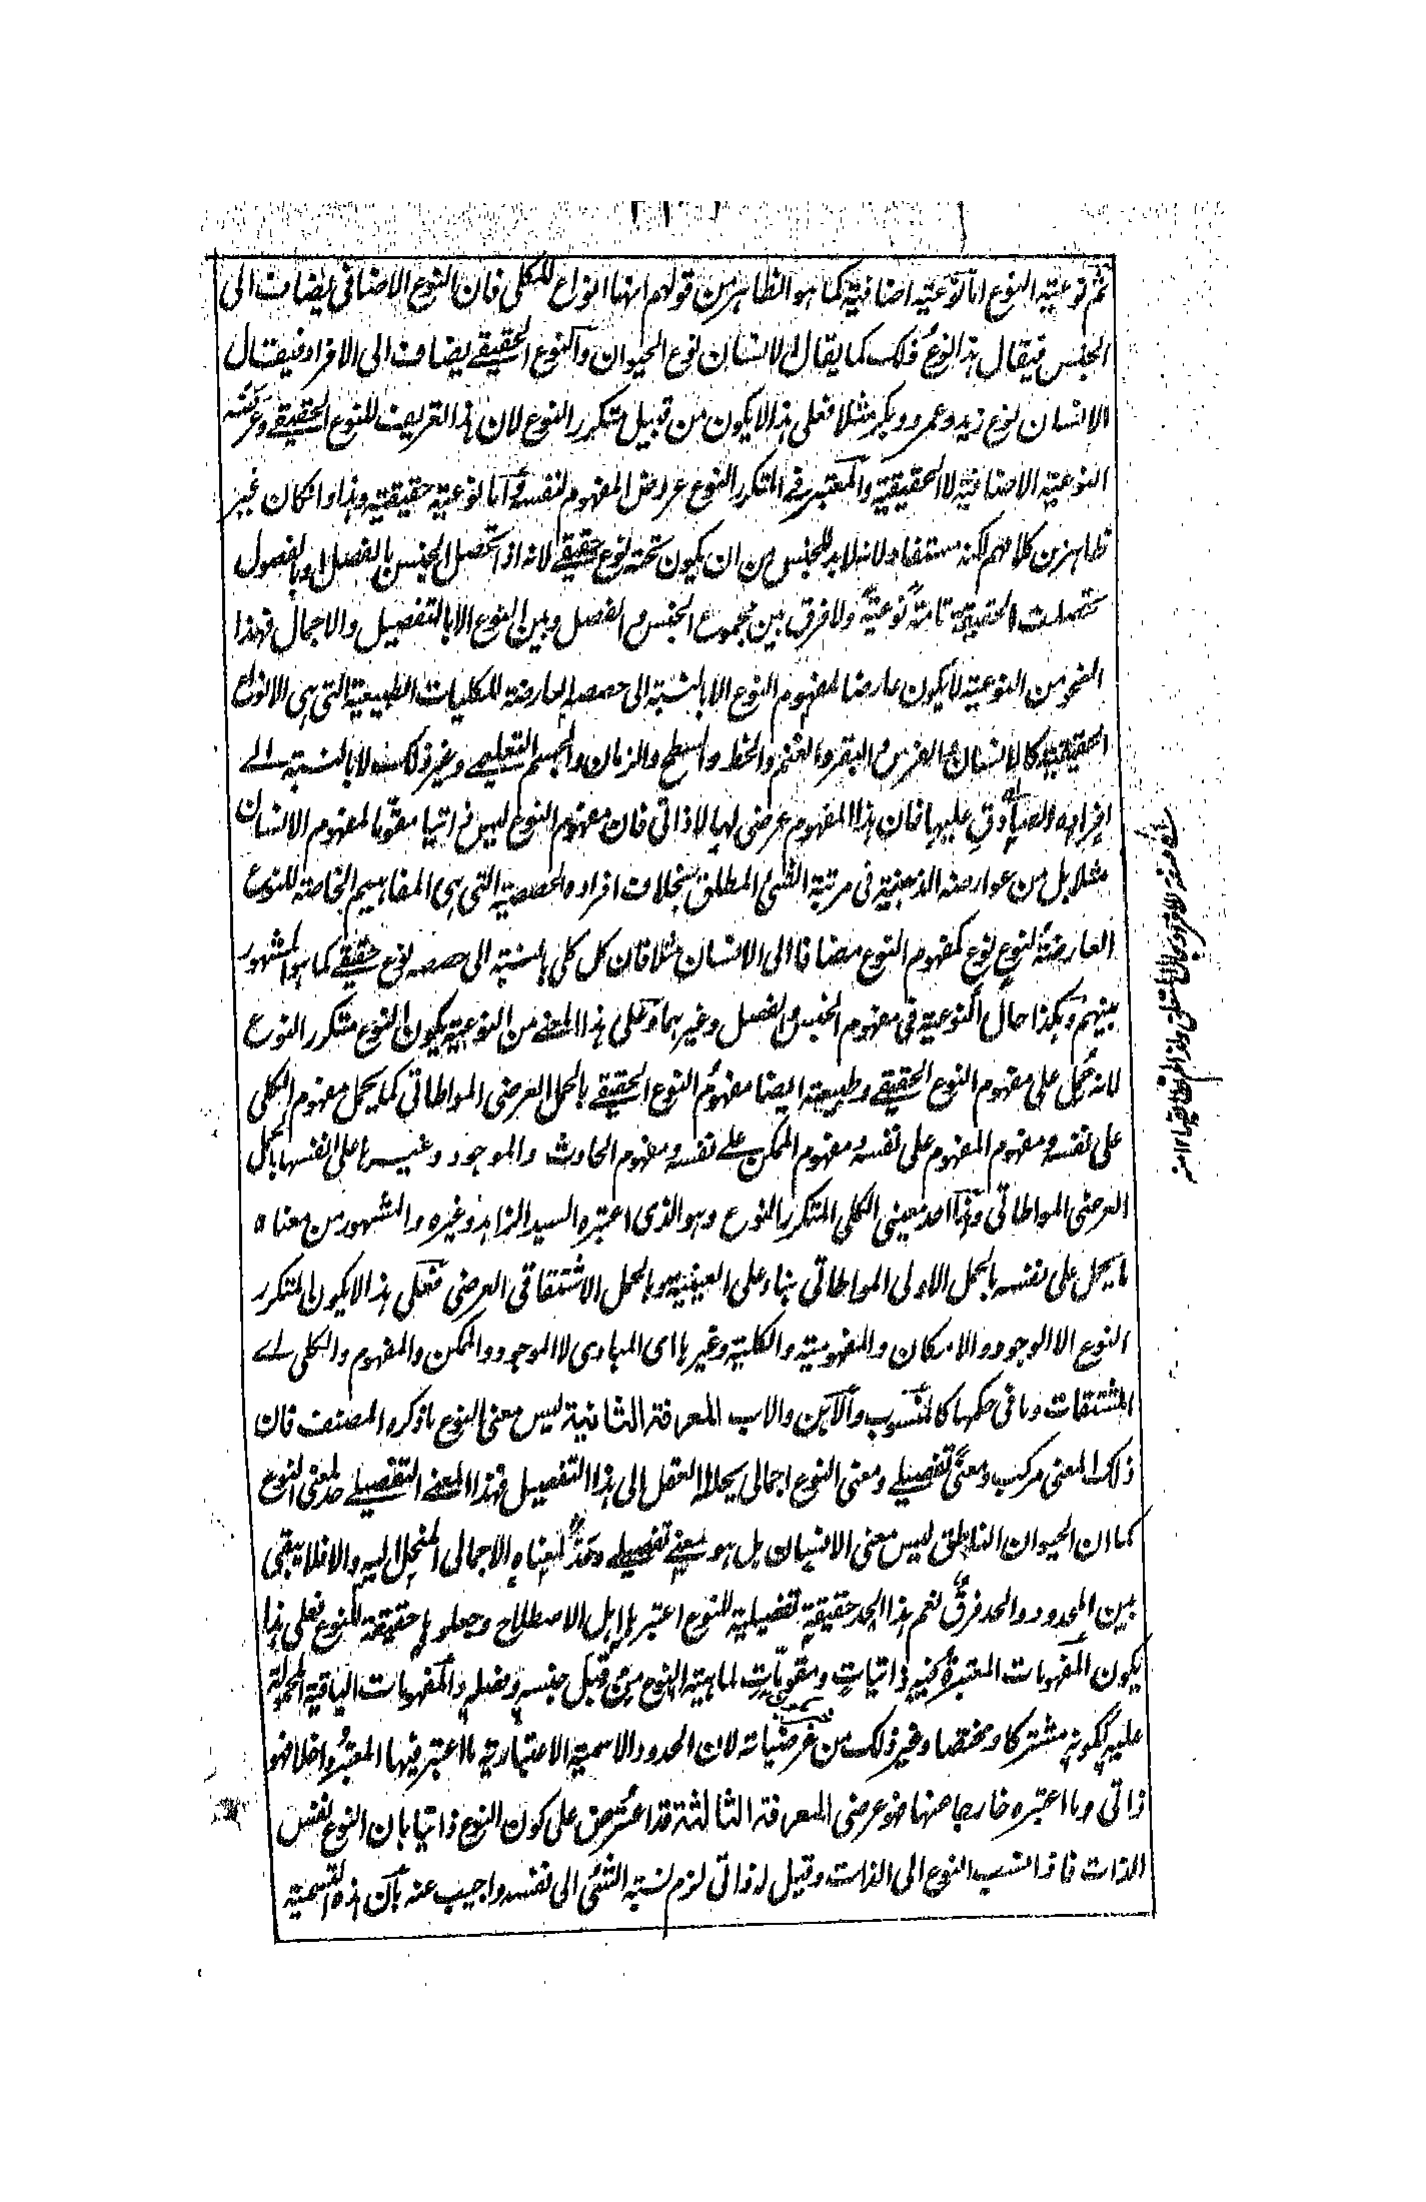 ثم نوعية النوع اما نوعية اضافية كما هو الظاهر من قولهم انها انواع للكلي فان النوع الاضافي يضاف الى
الجنس فيقال هذا النوع فلك كما يقال الانسان نوع الحيوان والنوع الحقيقي يضاف الى الافراد فيقال
الانسان نوع زيد وعمرو وبكر مثلا فعلى هذا لا يكون من قبيل متكرر النوع لان هذا التعريف للنوع الحقيقي
النوعية الاضافية لا الحقيقية والمعتبر في المتكرر النوع عروض المفهوم لنفسه واما نوعية حقيقية وهذا وان كان غير
ظاهر من كلامهم لكنه مستفاد لانه لابد للجنس من ان يكون تحته نوع حقيقي لانه اذا تحصل الجنس بالفصل او بالفصول
تحصلت الحقيقة تامة نوعية ولا فرق بين مجموع الجنس والفصل وبين النوع الا بالتفصيل والاجمال فهذا
النحو من النوعية لا يكون عارضا لمفهوم النوع الا بالنسبة الى حصصه العارضة للكليات الطبيعية التي هي الانواع
الحقيقية كالانسان والفرس والبقر والغنم والخط والسطح والزمان والجسم التعليمي وغير ذلك لا بالنسبة الى
افراده الصادق عليها فان هذا المفهوم عرضي لها لا ذاتي فان مفهوم النوع ليس ذاتيا مقوما لمفهوم الانسان
مثلا بل من عوارضه الذهنية في مرتبة الشئ المطلق بخلاف افراده الحصصية التي هي المفاهيم الخاصة للنوع
العارضة لنوع نوع كمفهوم النوع مضافا الى الانسان مثلا فان كل كلي بالنسبة الى حصصه نوع حقيقي كما هو المشهور
بينهم وهكذا حال النوعية في مفهوم الجنس والفصل وغيرهما وعلى هذا المعنى من النوعية يكون النوع متكرر النوع
لانه يحمل على مفهوم النوع الحقيقي وطبيعته ايضا مفهوم النوع الحقيقي بالحمل العرضي المواطاتي كما يحمل مفهوم الكلي
على نفسه ومفهوم المفهوم على نفسه ومفهوم الممكن على نفسه ومفهوم الحادث والموجود وغيرها على انفسها بالحمل
العرضي المواطاتي وهذا احد معنيي الكلي المتكرر النوع وهو الذي اعتبره السيد الزاهد وغيره والمشهور من معناه
ما يحمل على نفسه بالحمل الاولى المواطاتي بناء على العينية وبالحمل الاشتقاقي العرضي فعلى هذا لا يكون المتكرر
النوع الا الوجود والامكان والمفهومية والكلية وغيرها اى المبادى لا الموجود والممكن والمفهوم والكلي اے
المشتقات وما في حكمها كالمنسوب والابن والاب المعرفة الثانية ليس معنى النوع ما ذكره المصنف فان
ذلك المعنى مركب ومعنى تفصيلي ومعنى النوع اجمالي يحلله العقل الى هذا التفصيل فهذا المعنى التفصيلي حد لمعنى النوع
كما ان الحيوان الناطق ليس معنى الانسان بل هو معنى تفصيلي وحد لمعناه الاجمالي المنحل اليه والا فلا يبقى
بين المحدود والحد فرق نعم هذا الحد حقيقة تفصيلية للنوع اعتبرها اهل الاصطلاح وجعلوها حقيقة للنوع فعلى هذا
يكون المفهومات المعتبرة فيه ذاتيات ومقومات لماهية النوع من قبل جنسه وفصله والمفهومات الباقية المحمولة
عليه ككونه مشتركا ومختصا وغير ذلك من عرضياته لان الحدود الاسمية الاعتبارية ما اعتبر فيها المعتبر داخلا فهو
ذاتي وما اعتبره خارجا عنها فهو عرضي المعرفة الثالثة قد اعترض على كون النوع ذاتيا بان النوع نفس
الذات فاذا انتسب النوع الى الذات وقيل له ذاتي لزم نسبة الشئ الى نفسه واجيب عنه بان هذه التسمية